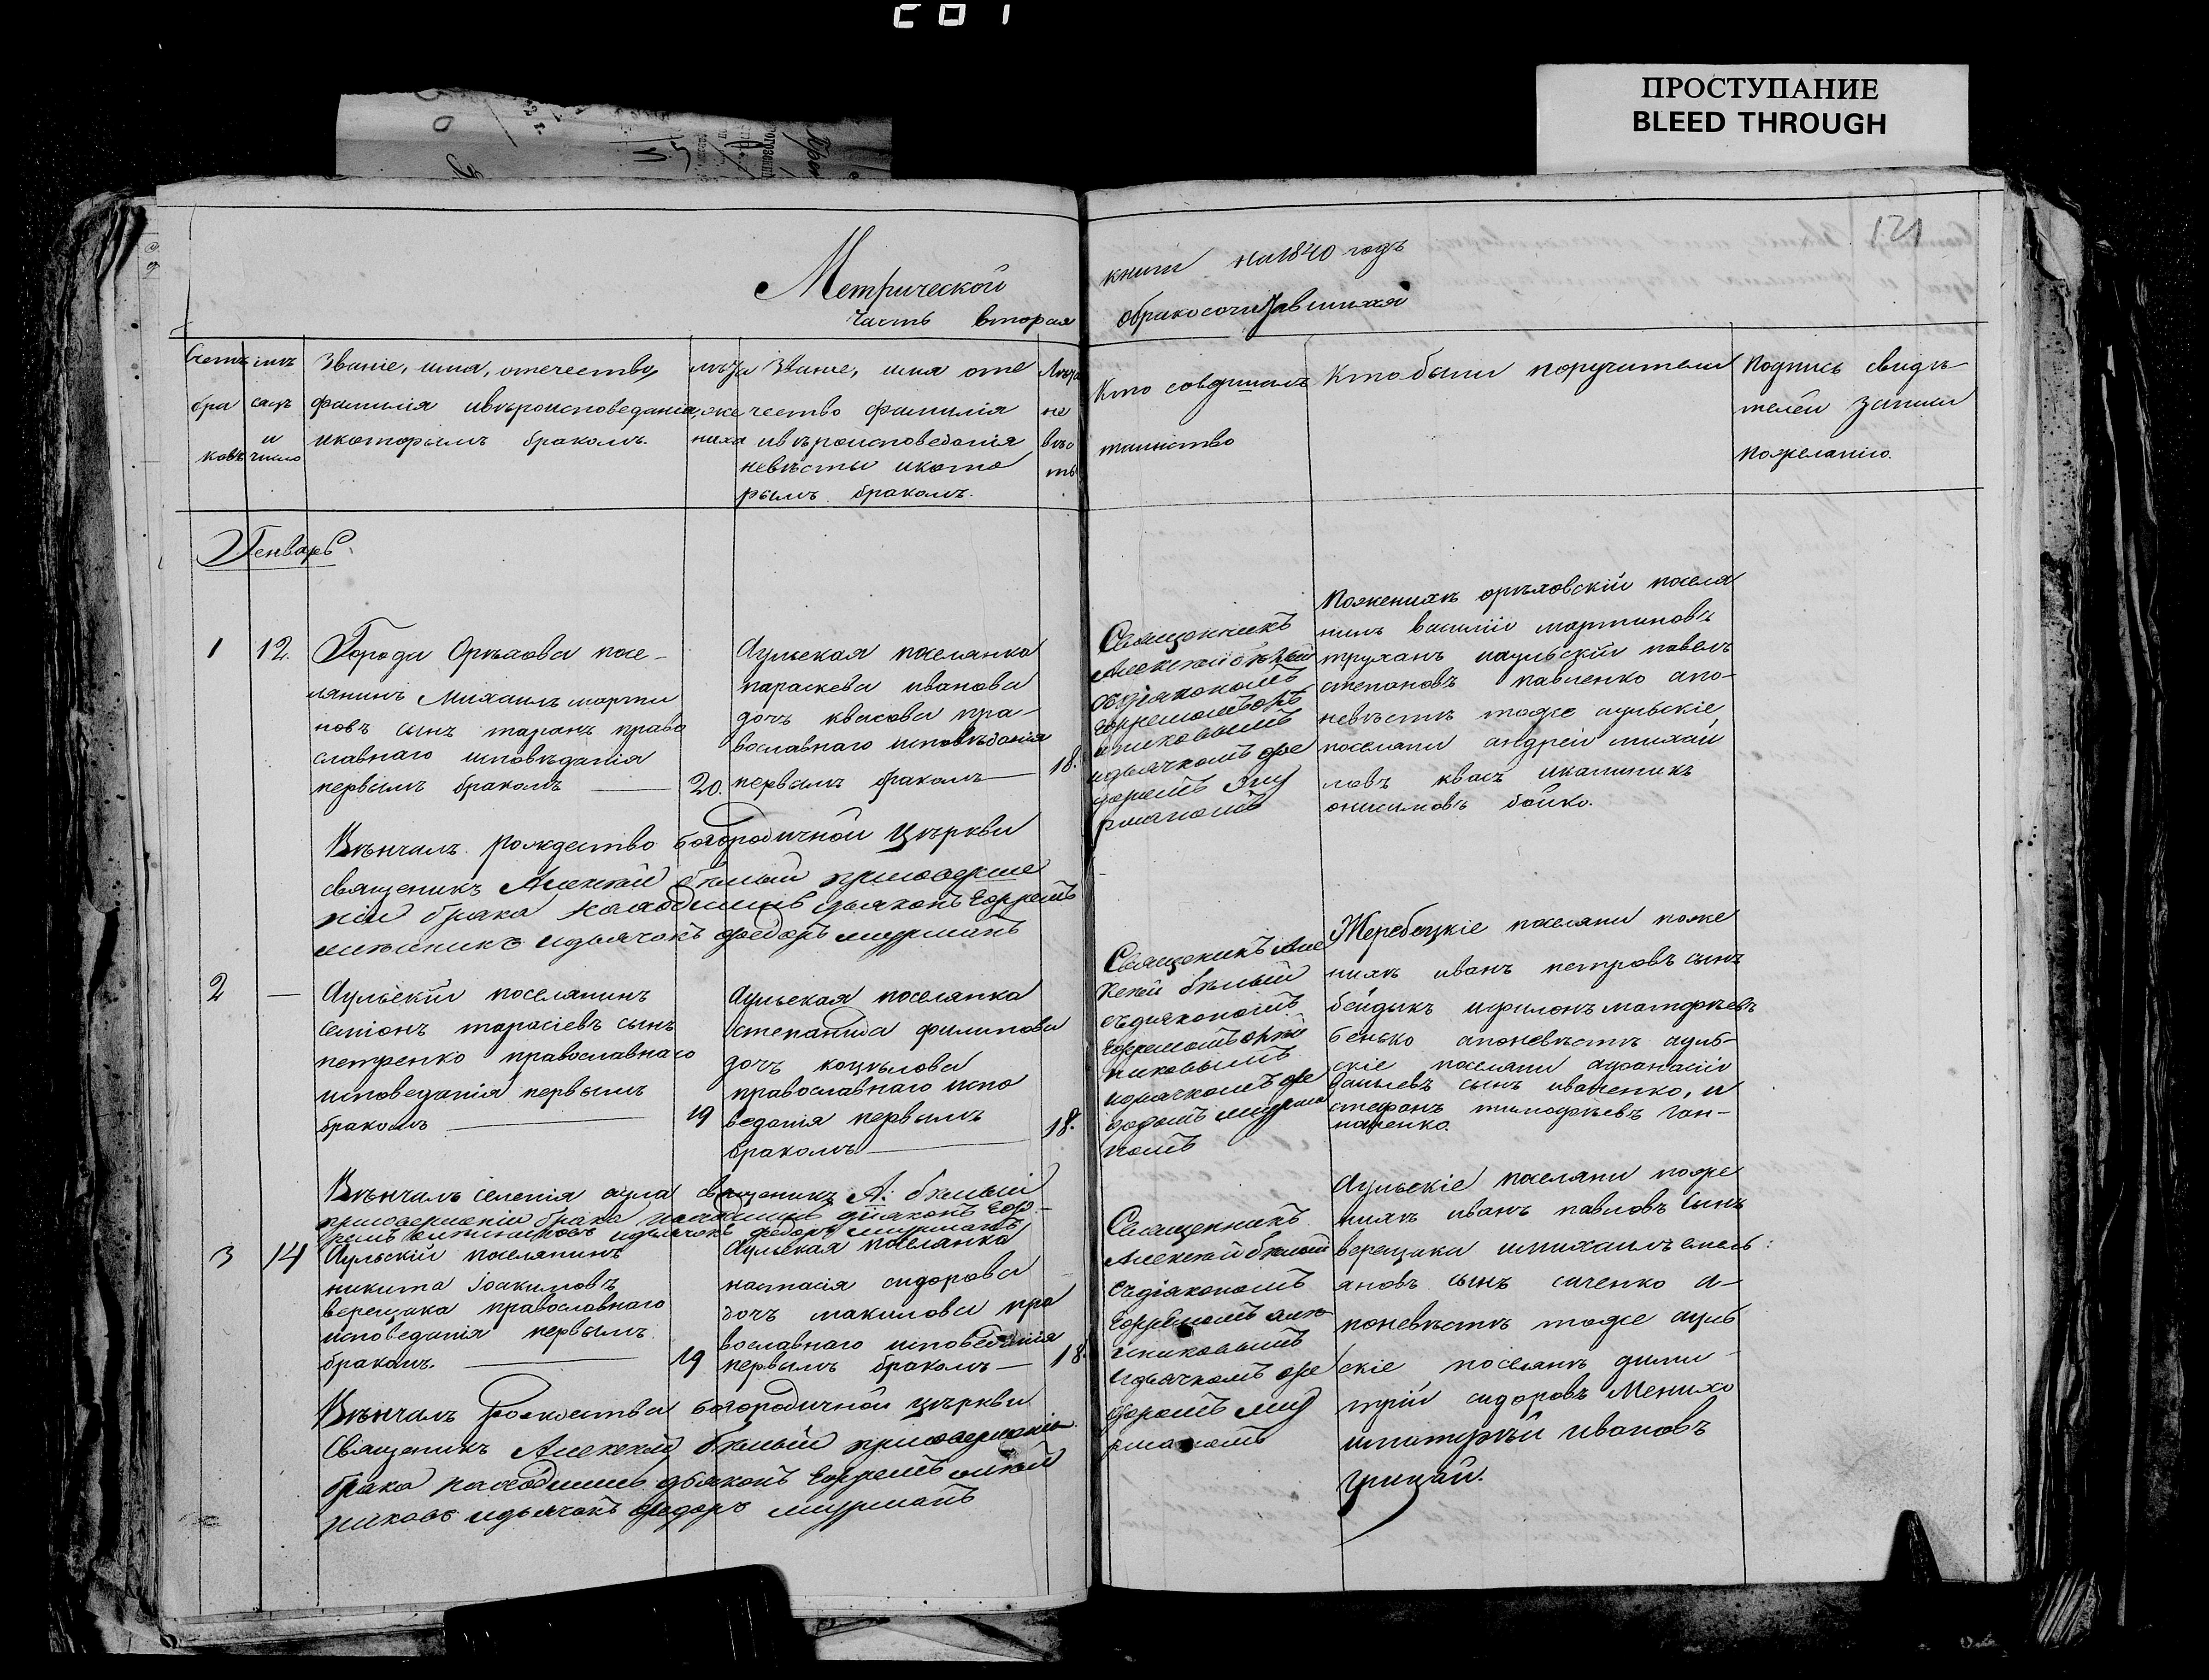 ПРОСТУПАНИЕ
BLEED THROUGH
121
Метрической
часть вторая
книги на 1840 годъ
обракосочитавшихся
Счетъ бра ковъ
мѣ сацъ и число
Званіе, имя, отечество,
фамилія ивѣроисповеданіе,
икоторымъ бракомъ.
лѣта
же
ниха
Званіе, имя оте
чество фамилія
ивѣроисповеданія
невѣсты икото
рымъ бракомъ.
Лѣта
не
вѣс
ты
Кто совершалъ
таинство
Кто были поручители
Подпись свидѣ-
телей записи
пожеланію.
Генварь
1
12.
Города Орѣхова посе-
лянинъ Михаилъ марти
новъ сынъ таранъ право
славнаго исповѣданія
первымъ бракомъ
20.
Аульская поселянка
параскева иванова
дочь квасова пра-
вославнаго исповѣданія
первымъ бракомъ
18.
Священникъ
Алексѣй бѣлый
съдіакономъ
идьячкомъ фе
доромъ
Поженихѣ орѣховскій поселя
нинъ василій мартиновъ
труханъ иаульскій павелъ
степановъ павленко апо-
невѣстѣ тоже аульскіе
поселяни андрей михай
ловъ квасъ
онисимовъ бойко.
Вѣнчалъ рождество богородичной цѣркви
священикъ Алексѣй бѣлый присоверше
ніи брака находились дьяконъ Ефремъ
идьячокъ федоръ мурманъ
2
Аульскій поселянинъ
семіонъ тарасіевъ сынъ
петренко православнаго
исповеданія первымъ
бракомъ
19
Аульская поселянка
степанида филипова
дочь коцѣлова
православнаго испо
веданія первымъ
бракомъ
18.
Священикъ Але
ксѣй бѣлый
съдиякономъ
Ефремомъ
никовымъ
идячкомъ фе
доромъ мурма
номъ
Жеребецкіе поселяни поже
нихѣ иванъ петровъ сынъ
бейдыкъ ифилонъ матфѣевъ
бенько апоневѣстѣ ауль-
скіе поселяни афанасій
сынъ иваненко, и
стефанъ тимофѣевъ ган-
наченко.
Вѣнчалъ селенія аула священикъ А: бѣлый
присовершеніи брака находились діяконъ Еф-
ремъ идьячокъ федоръ мурманъ
3
14
Аульскій поселянинъ
никита Іоакимовъ
верещака православнаго
исповеданія первымъ
бракомъ.
19
Аульская поселянка
настасія сидорова
дочь макилова пра
вославнаго исповеданія
первымъ бракомъ
18.
Священникъ
Алексѣй бѣлый
съдіакономъ
Ефремомъ
никовымъ
идьячкомъ фе
доромъ мур
маномъ
Аульскіе поселяни поже
нихѣ иванъ павловъ сынъ
верещака имихаилъ емель:
яновъ сынъ саченко а-
поневѣстѣ тоже ауль
скіе поселянѣ дими
трій сидоровъ Менихо
иматфѣй ивановъ
грицай.
Вѣнчалъ рождества богородичной цѣркви
Священикъ Алексѣй бѣлый присовершеніи
брака находились дьяконъ Ефремъ
никовъ идьячокъ федоръ мурманъ